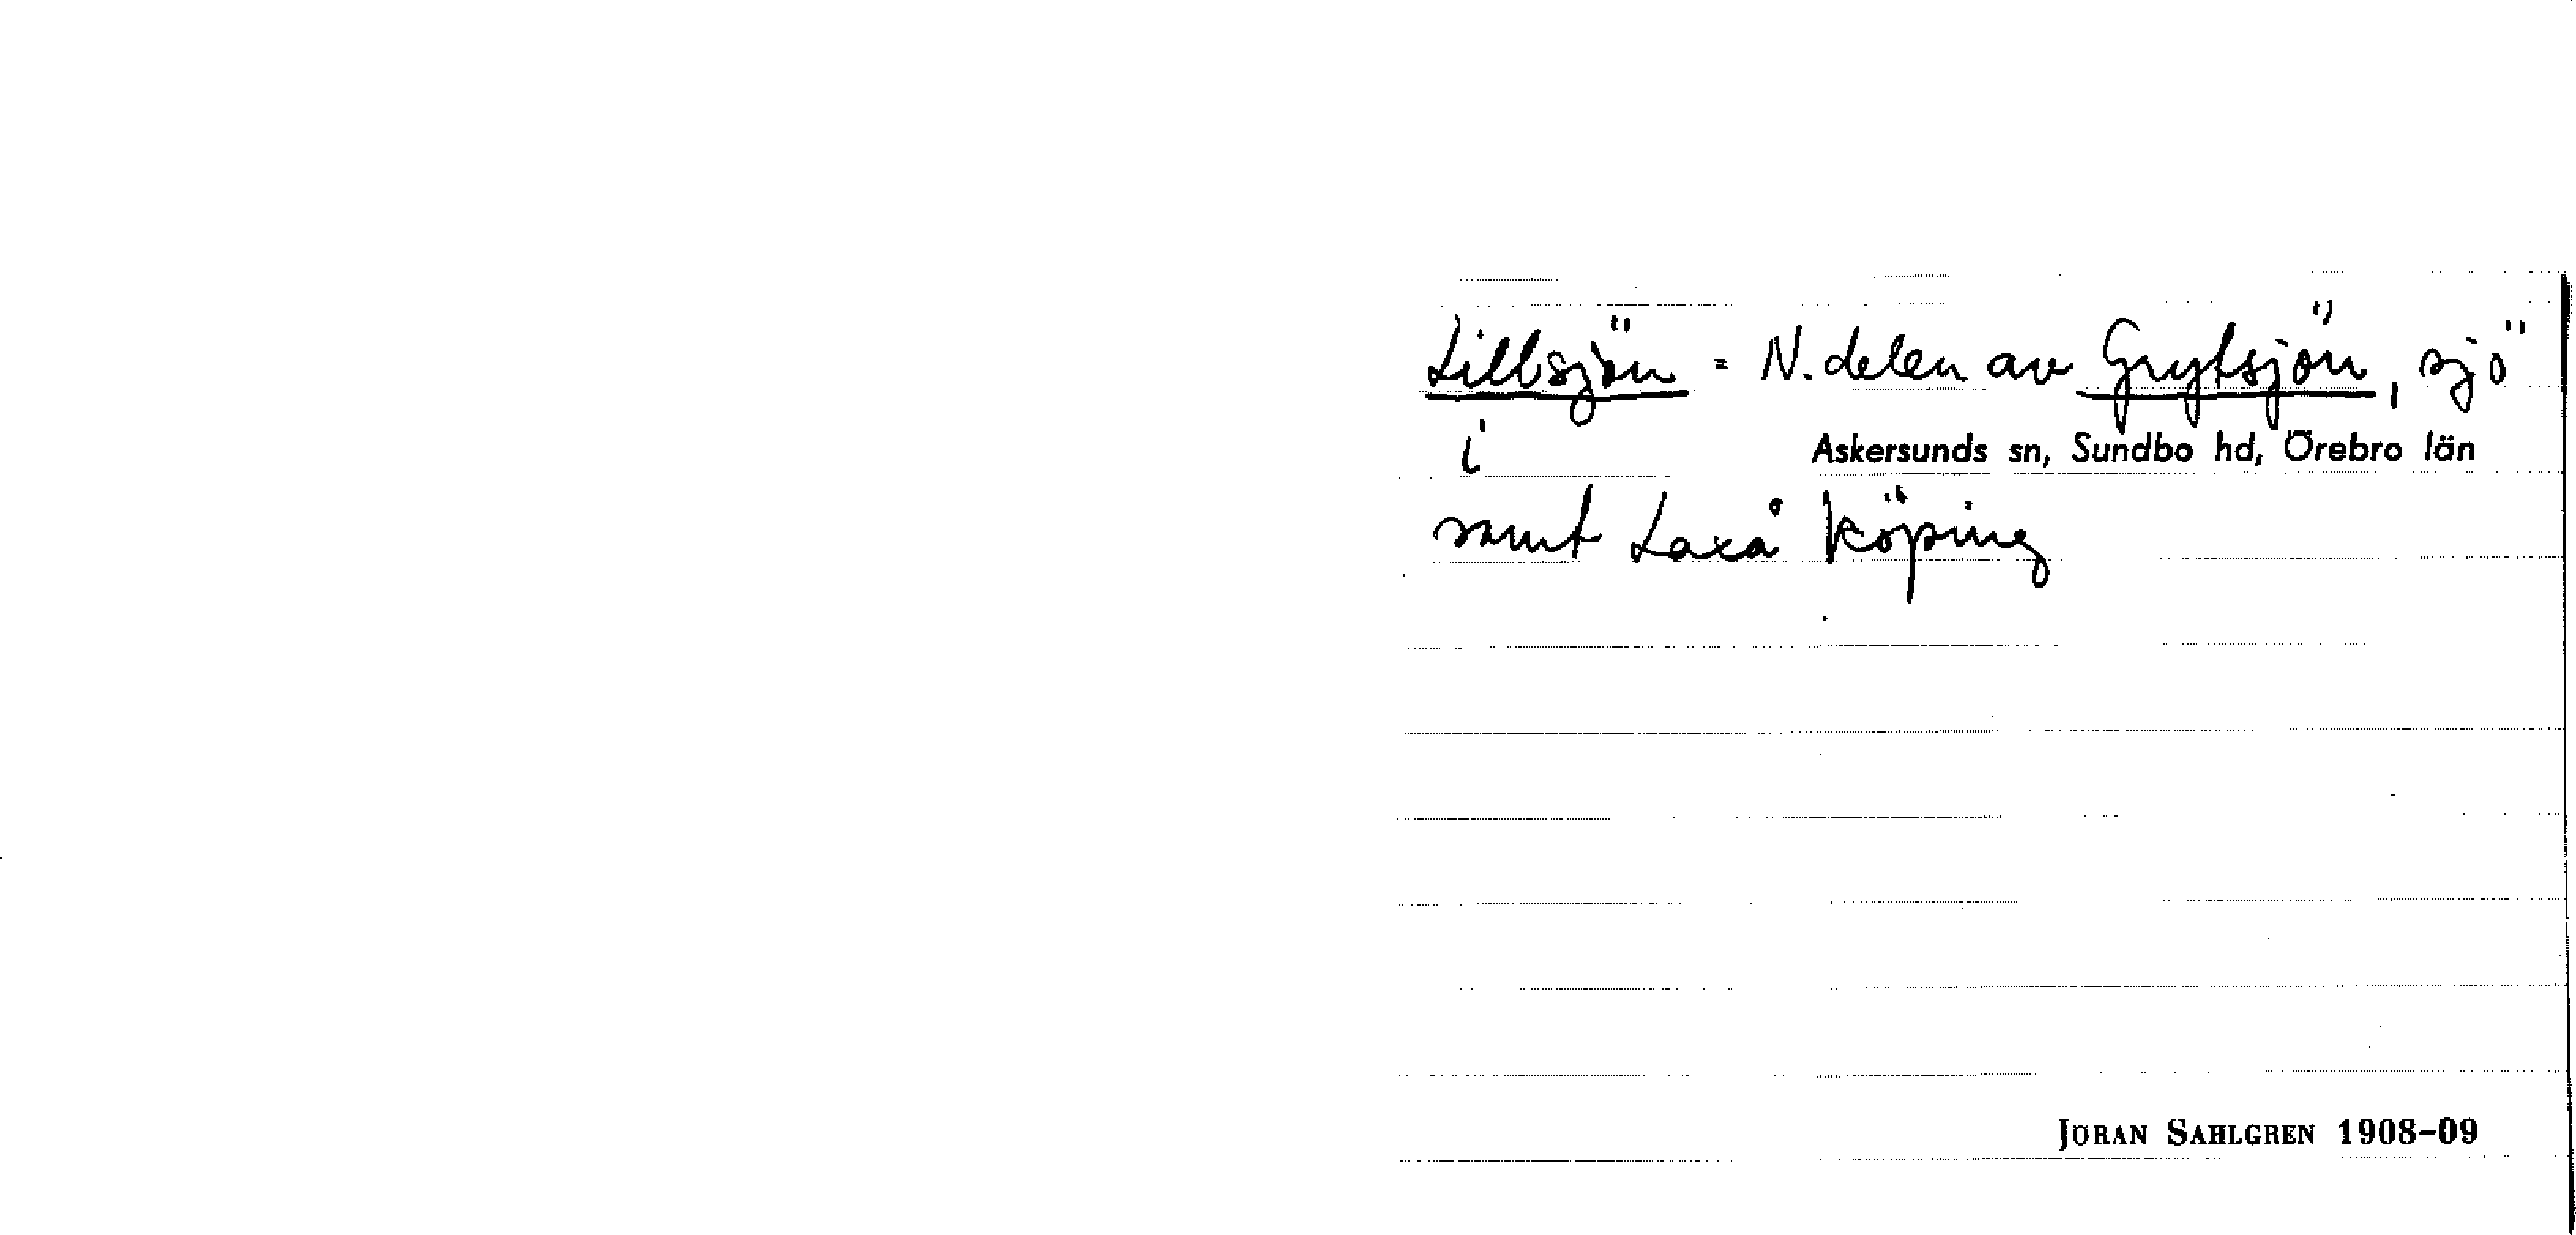 Lillsjön = N. delen av Grytsjön, sjö
i Askersunds sn, Sundbo hd, Örebro län
samt Laxå köping
JÖRAN SAHLGREN 1908-09